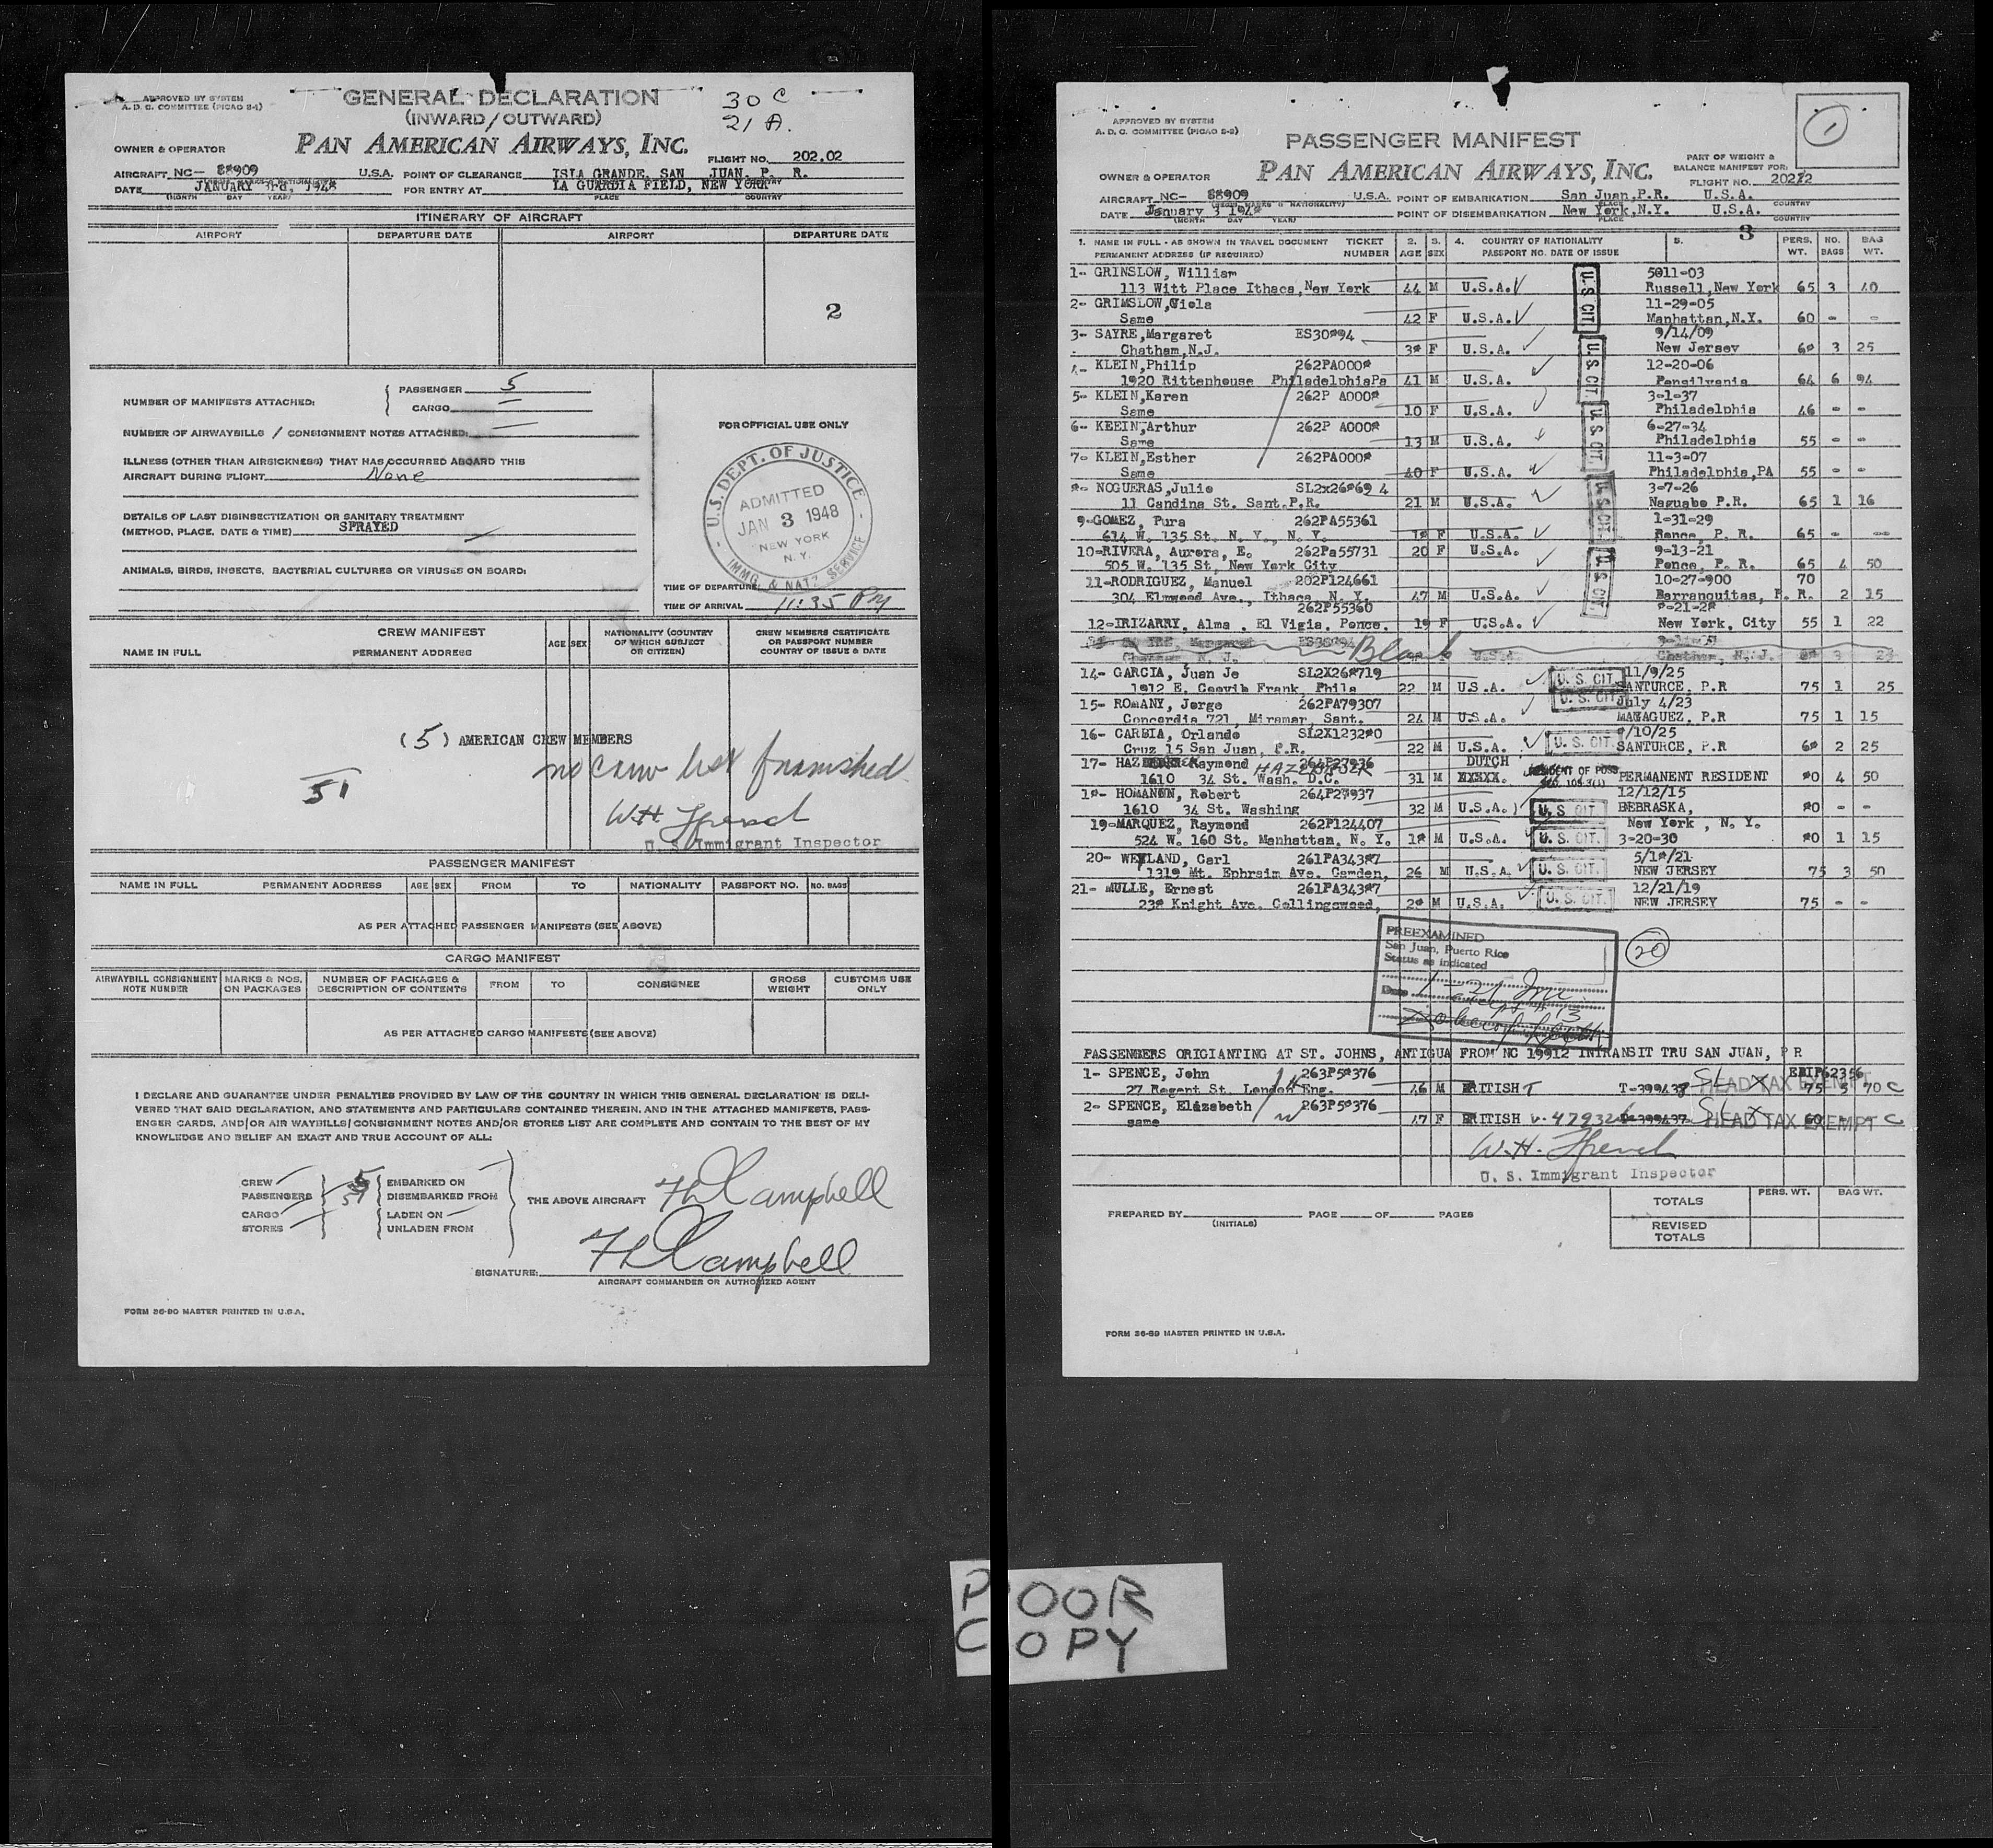 APPROVED BY SYSTEM
A. D. C. COMMITTEE (PICAO S-1)
GENERAL DECLARATION
(INWARD/OUTWARD)
30 C
21 A.
OWNER & OPERATOR
PAN AMERICAN AIRWAYS, INC.
FLIGHT NO. 202.02
AIRCRAFT NC- 88909 U.S.A. POINT OF CLEARANCE ISLA GRANDE, SAN JUAN, P. R.
DATE JANUARY 3rd, 1948 FOR ENTRY AT LA GUARDIA FIELD, NEW YORK
(MONTH DAY YEAR) PLACE COUNTRY
ITINERARY OF AIRCRAFT
AIRPORT DEPARTURE DATE AIRPORT DEPARTURE DATE
2
NUMBER OF MANIFESTS ATTACHED: PASSENGER 5
CARGO
NUMBER OF AIRWAYBILLS / CONSIGNMENT NOTES ATTACHED:
ILLNESS (OTHER THAN AIRSICKNESS) THAT HAS OCCURRED ABOARD THIS
AIRCRAFT DURING FLIGHT None
DETAILS OF LAST DISINSECTIZATION OR SANITARY TREATMENT
(METHOD, PLACE, DATE & TIME) SPRAYED
ANIMALS, BIRDS, INSECTS, BACTERIAL CULTURES OR VIRUSES ON BOARD:
FOR OFFICIAL USE ONLY
U.S. DEPT. OF JUSTICE
ADMITTED
JAN 3 1948
NEW YORK
N. Y.
IMMG. & NATZ SERVICE
TIME OF DEPARTURE
TIME OF ARRIVAL 11:35 PM
CREW MANIFEST
NAME IN FULL PERMANENT ADDRESS AGE SEX NATIONALITY (COUNTRY OF WHICH SUBJECT OR CITIZEN) CREW MEMBERS CERTIFICATE OR PASSPORT NUMBER COUNTRY OF ISSUE & DATE
(5) AMERICAN CREW MEMBERS
no crew list furnished
51
U. S. Immigrant Inspector
PASSENGER MANIFEST
NAME IN FULL PERMANENT ADDRESS AGE SEX FROM TO NATIONALITY PASSPORT NO. NO. BAGS
AS PER ATTACHED PASSENGER MANIFESTS (SEE ABOVE)
CARGO MANIFEST
AIRWAYBILL CONSIGNMENT NOTE NUMBER MARKS & NOS. ON PACKAGES NUMBER OF PACKAGES & DESCRIPTION OF CONTENTS FROM TO CONSIGNEE GROSS WEIGHT CUSTOMS USE ONLY
AS PER ATTACHED CARGO MANIFESTS (SEE ABOVE)
I DECLARE AND GUARANTEE UNDER PENALTIES PROVIDED BY LAW OF THE COUNTRY IN WHICH THIS GENERAL DECLARATION IS DELI-
VERED THAT SAID DECLARATION, AND STATEMENTS AND PARTICULARS CONTAINED THEREIN, AND IN THE ATTACHED MANIFESTS, PASS-
ENGER CARDS, AND/OR AIR WAYBILLS/CONSIGNMENT NOTES AND/OR STORES LIST ARE COMPLETE AND CONTAIN TO THE BEST OF MY
KNOWLEDGE AND BELIEF AN EXACT AND TRUE ACCOUNT OF ALL:
CREW 5 EMBARKED ON
PASSENGERS 51 DISEMBARKED FROM THE ABOVE AIRCRAFT Campbell
CARGO LADEN ON
STORES UNLADEN FROM
SIGNATURE: Campbell
AIRCRAFT COMMANDER OR AUTHORIZED AGENT
FORM 36-80 MASTER PRINTED IN U.S.A.
APPROVED BY SYSTEM
A. D. C. COMMITTEE (PICAO S-2)
PASSENGER MANIFEST
1
OWNER & OPERATOR
PAN AMERICAN AIRWAYS, INC.
PART OF WEIGHT &
BALANCE MANIFEST FOR:
FLIGHT NO. 20212
AIRCRAFT NC- 88909 U.S.A. POINT OF EMBARKATION San Juan,P.R. U.S.A.
DATE January 3 1948 POINT OF DISEMBARKATION New York,N.Y. U.S.A.
(MONTH DAY YEAR) PLACE COUNTRY
3
1. NAME IN FULL - AS SHOWN IN TRAVEL DOCUMENT TICKET 2. 3. 4. COUNTRY OF NATIONALITY 5. PERS. NO. BAG
PERMANENT ADDRESS (IF REQUIRED) NUMBER AGE SEX PASSPORT NO. DATE OF ISSUE WT. BAGS WT.
1- GRINSLOW, William 5011-03
113 Witt Place Ithaca,New York 44 M U.S.A. Russell,New York 65 3 40
2- GRIMSLOW,Viola 11-29-05
Same 42 F U.S.A. Manhattan,N.Y. 60 - -
3- SAYRE,Margaret ES30894 9/14/09
Chatham,N.J. 38 F U.S.A. New Jersey 68 3 25
4- KLEIN,Philip 262PA0008 12-20-06
1920 Rittenhouse PhiladelphiaPa 41 M U.S.A. Pensilvania 64 6 94
5- KLEIN,Karen 262P A0008 3-1-37
Same 10 F U.S.A. Philadelphia 46 - -
6- KEEIN,Arthur 262P A0008 6-27-34
Same 13 M U.S.A. Philadelphia 55 - -
7- KLEIN,Esther 262PA0008 11-3-07
Same 40 F U.S.A. Philadelphia,PA 55 - -
8- NOGUERAS,Julio SL2x26869 4 3-7-26
11 Candina St. Sant.P.R. 21 M U.S.A. Naguabo P.R. 65 1 16
9-GOMEZ, Pura 262PA55361 1-31-29
614 W. 135 St. N. Y., N. Y. 18 F U.S.A. Ponce, P. R. 65 - --
10-RIVERA, Aurora, E. 262Pa55731 20 F U.S.A. 9-13-21
505 W. 135 St, New York City Ponce, P. R. 65 4 50
11-RODRIGUEZ, Manuel 202P124661 10-27-900 70
304 Elmwood Ave., Ithaca, N. Y. 47 M U.S.A. Barranquitas, P. R. 2 15
262P55360 8-21-28
12-IRIZARRY, Alma , El Vigia, Ponce. 19 F U.S.A. New York, City 55 1 22
Blank
14- GARCIA, Juan Je SL2X268719 11/9/25
1912 E. Frank, Phila 22 M U.S.A. U. S. CIT. SANTURCE, P.R 75 1 25
15- ROMANY, Jorge 262PA79307 U. S. CIT. July 4/23
Concordia 721, Miramar, Sant. 24 M U.S.A. MAYAGUEZ, P.R 75 1 15
16- CARBIA, Orlando SL2X123280 /10/25
Cruz 15 San Juan, P.R. 22 M U.S.A. U. S. CIT. SANTURCE, P.R 68 2 25
17- Raymond 264P27936 DUTCH
1610 34 St. Wash. D.C. 31 M PERMANENT RESIDENT 80 4 50
18- HOMANN, Robert 264P27937 12/12/15
1610 34 St. Washing 32 M U.S.A. U. S CIT. BEBRASKA, 80 - -
19-MARQUEZ, Raymond 262P124407 New York , N. Y.
524 W. 160 St. Manhattan, N. Y. 18 M U.S.A. U. S. CIT. 3-20-30 80 1 15
20- WEYLAND, Carl 261PA34387 5/18/21
1319 Mt. Ephraim Ave. Camden, 26 M U.S.A. U. S. CIT. NEW JERSEY 75 3 50
21- MULLE, Ernest 261PA34387 12/21/19
238 Knight Ave. Collingswood, 28 M U.S.A. U. S. CIT. NEW JERSEY 75 - -
PREEXAMINED
San Juan, Puerto Rico
Status as indicated
Date
20
PASSENGERS ORIGIANTING AT ST. JOHNS, ANTIGUA FROM NC 19912 INTRANSIT TRU SAN JUAN, P R
1- SPENCE, John 263P58376
27 Regent St. London Eng. 46 M BRITISH T-399438 HEAD TAX EXEMPT 75 5 70 C
2- SPENCE, Elizabeth 263P58376
same 47 F BRITISH HEAD TAX EXEMPT 60 C
U. S. Immigrant Inspector
PREPARED BY (INITIALS) PAGE OF PAGES
PERS. WT. BAG WT.
TOTALS
REVISED TOTALS
FORM 36-89 MASTER PRINTED IN U.S.A.
POOR
COPY